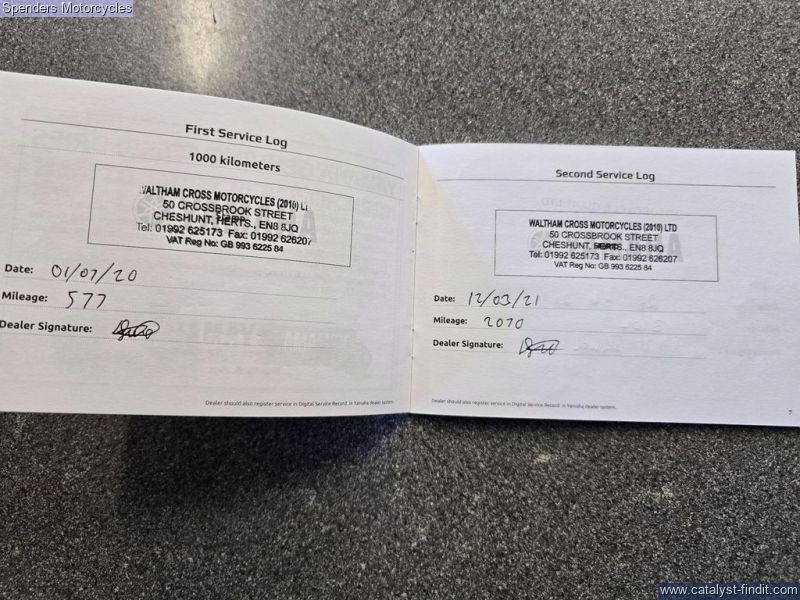 Spenders Motorcycles
First Service Log
1000 kilometers
WALTHAM CROSS MOTORCYCLES (2010) LT
50 CROSSBROOK STREET
CHESHUNT, HERTS., EN8 8JQ
Tel: 01992 625173 Fax: 01992 626207
VAT Reg No: GB 993 6225 84
Date: 01/07/20
Mileage: 577
Dealer Signature:
Dealer should also register service in Digital Service Record in Yamaha dealer system.
Second Service Log
WALTHAM CROSS MOTORCYCLES (2010) LTD
50 CROSSBROOK STREET
CHESHUNT, HERTS., EN8 8JQ
Tel: 01992 625173 Fax: 01992 626207
VAT Reg No: GB 993 6225 84
Date: 12/03/21
Mileage: 2070
Dealer Signature:
Dealer should also register service in Digital Service Record in Yamaha dealer system.
7
www.catalyst-findit.com